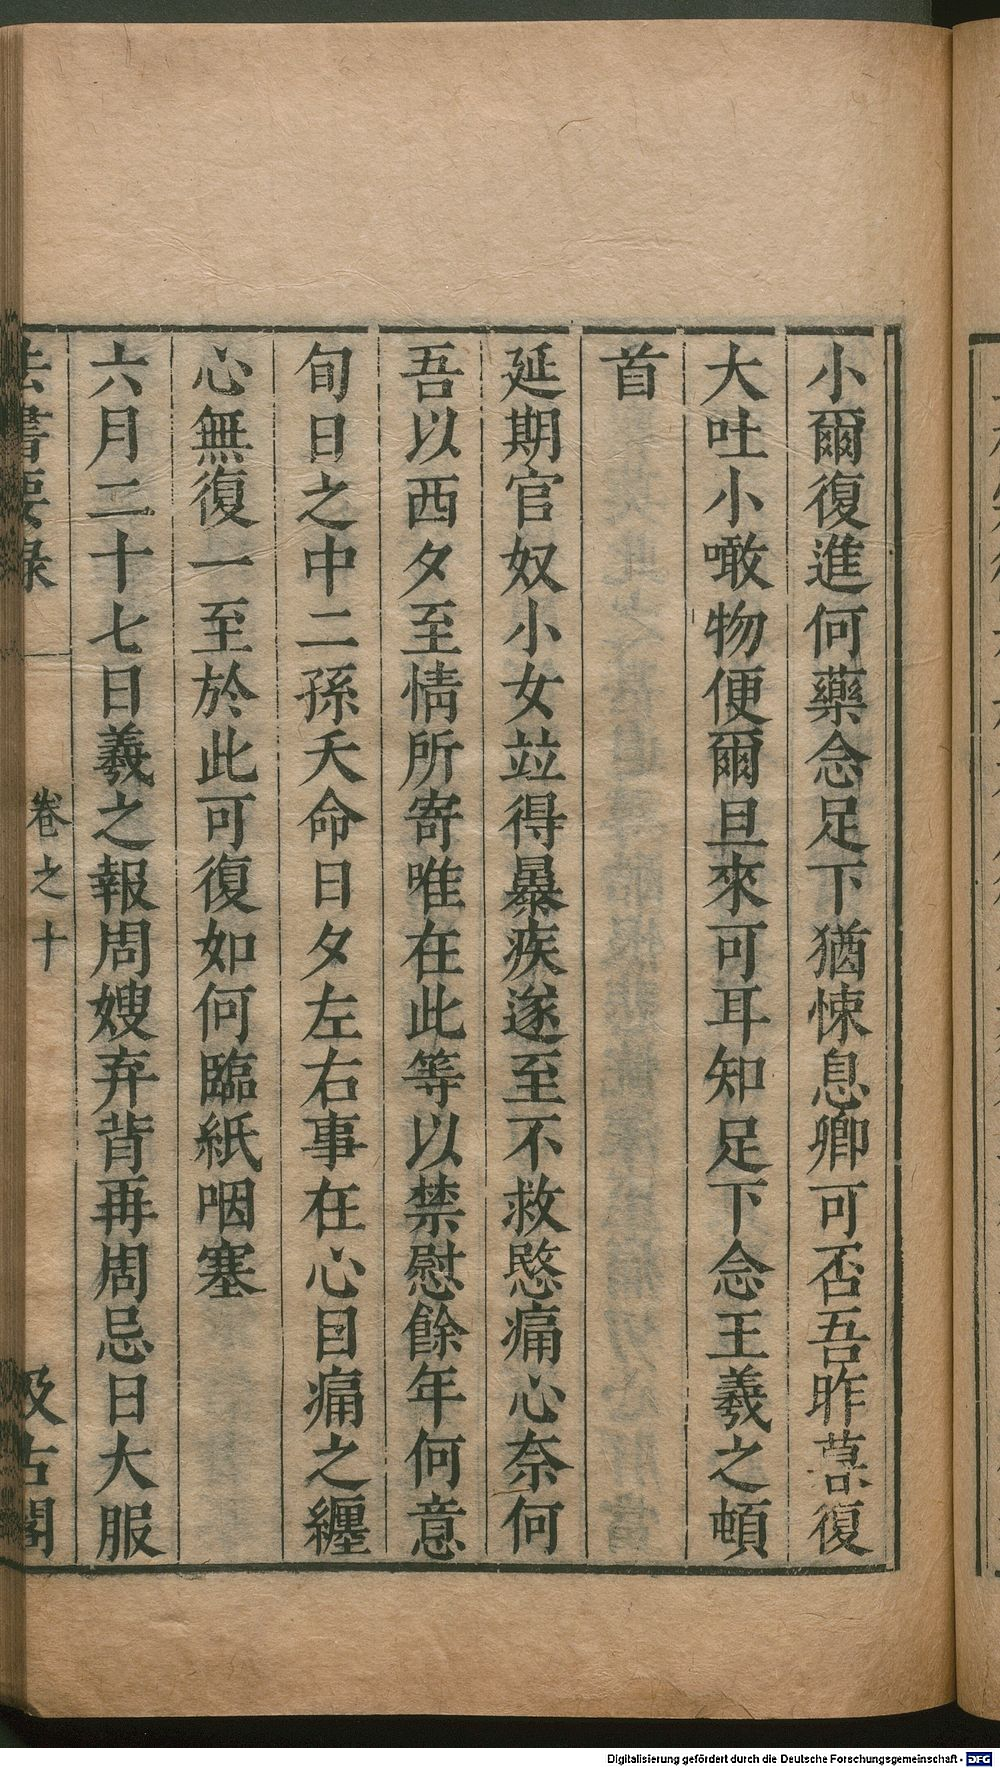 小爾復進何藥念足下猶悚息卿可否吾昨暮復
大吐小噉物便爾旦來可耳知足下念王羲之頓
首
延期官奴小女竝得暴疾遂至不救愍痛心奈何
吾以西夕至情所寄唯在此等以禁慰餘年何意
旬日之中二孫夭命日夕左右事在心目痛之纏
心無復一至於此可復如何臨紙咽塞
六月二十七日羲之報周嫂弃背再周忌日大服
法書要錄 卷之十 汲古閣
Digitalisierung gefördert durch die Deutsche Forschungsgemeinschaft - DFG